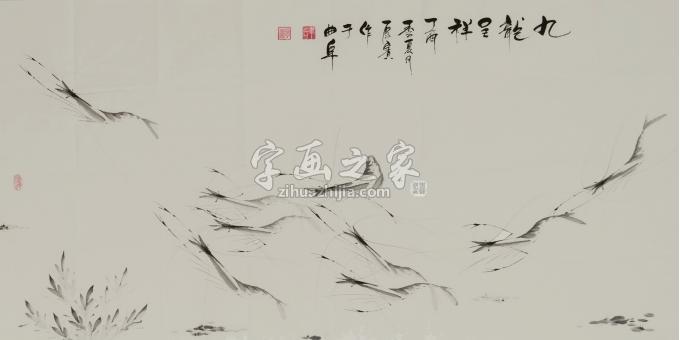 九龍呈祥
丁酉
季夏月
作
于
曲阜
字画之家
zihuazhijia.com